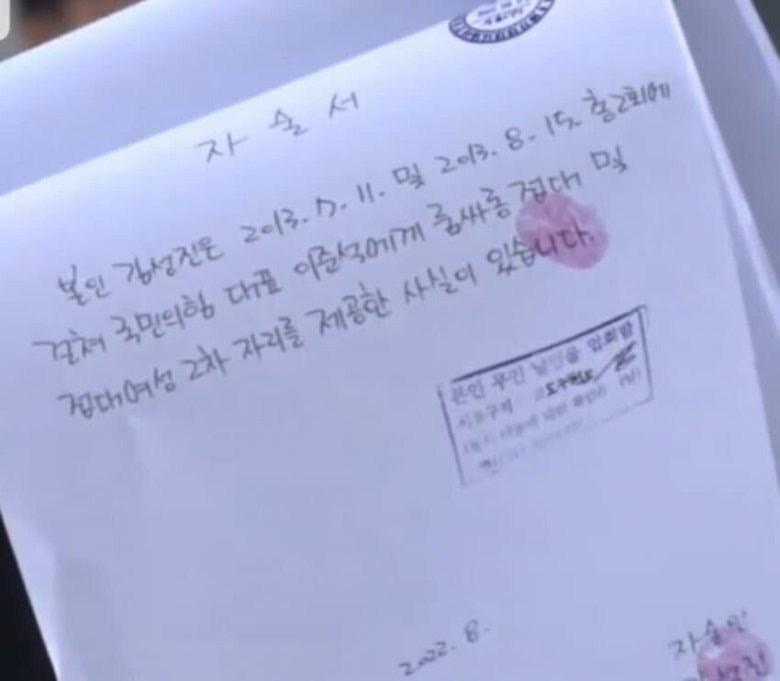 자술서
본인 김성진은 2013. 7. 11. 및 2013. 8. 15. 총2회에
걸쳐 국민의힘 대표 이준석에게 룸싸롱 접대 및
접대여성 2차 자리를 제공한 사실이 있습니다.
본인 무인 날인을 입회함
2022. 8.
자술인